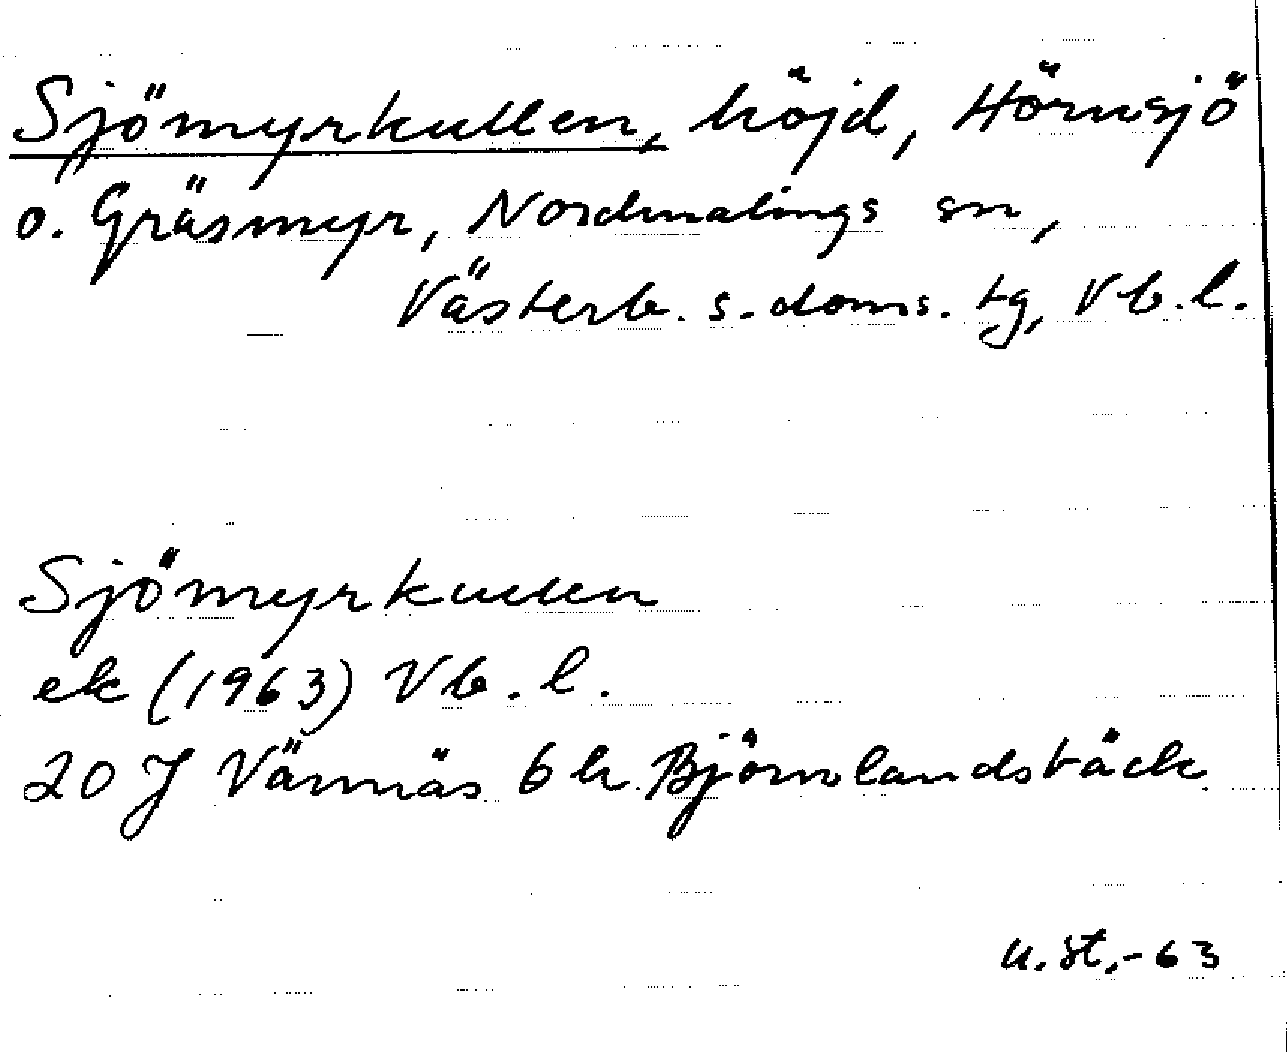 Sjömyrkullen, höjd, Hörnsjö
o. Gräsmyr, Nordmalings sn,
Västerb. s. doms. tg, Vb. l.
Sjömyrkullen
ek (1963) Vb. l.
20 J Värnäs 6 h Björnlandsbäck
u. st. -63